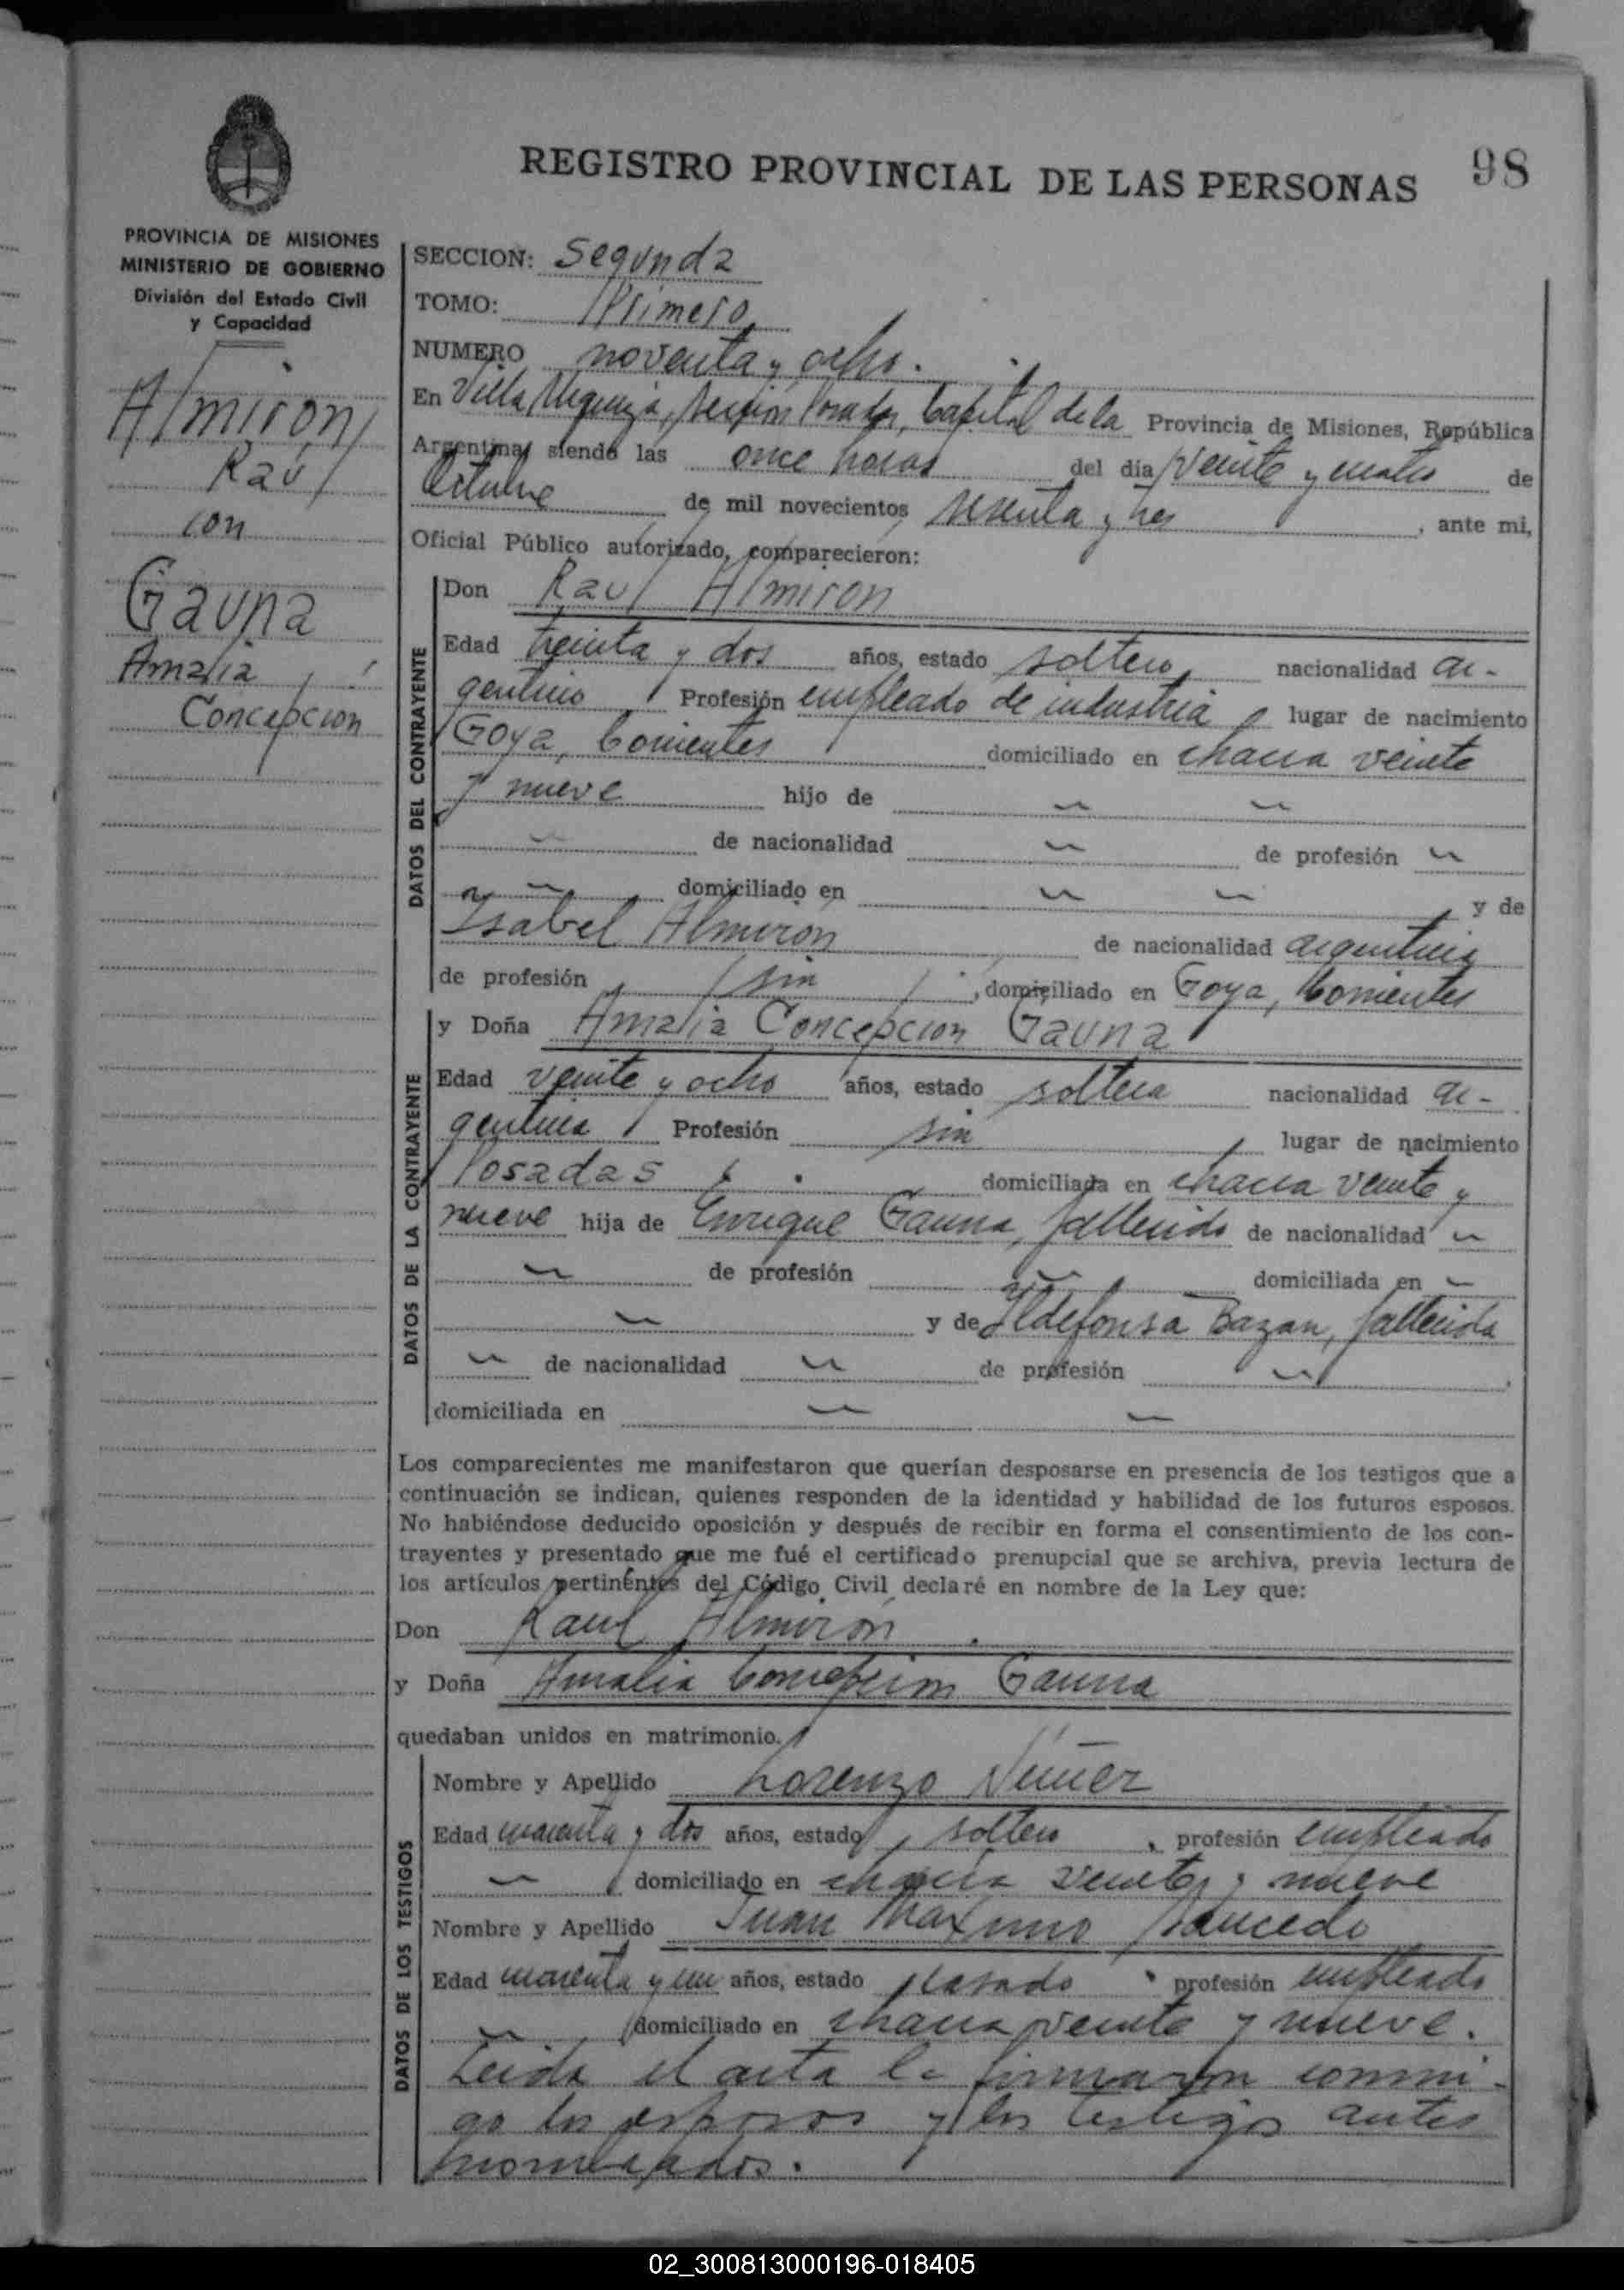 REGISTRO PROVINCIAL DE LAS PERSONAS
98
PROVINCIA DE MISIONES
MINISTERIO DE GOBIERNO
División del Estado Civil
y Capacidad
Almirón
Raúl
con
Gauna
Amalia
Concepcion
SECCION: Segunda
TOMO: Primero
NUMERO noventa y ocho.
En Villa Urquiza, sección Posadas, Capital de la Provincia de Misiones, República
Argentina, siendo las once horas del día veinte y cuatro de
Octubre de mil novecientos sesenta y tres, ante mi,
Oficial Público autorizado, comparecieron:
DATOS DEL CONTRAYENTE
Don Raul Almiron
Edad treinta y dos años, estado soltero, nacionalidad ar-
gentino Profesión empleado de industria lugar de nacimiento
Goya, Corrientes domiciliado en chacra veinte
y nueve hijo de
de nacionalidad de profesión
domiciliado en y de
Isabel Almirón de nacionalidad argentina
de profesión sin, domiciliado en Goya, Corrientes
DATOS DE LA CONTRAYENTE
y Doña Amalia Concepcion Gauna
Edad veinte y ocho años, estado soltera nacionalidad ar-
gentina Profesión sin, lugar de nacimiento
Posadas domiciliada en chacra veinte y
nueve hija de Enrique Gauna, fallecido de nacionalidad
de profesión domiciliada en
y de Ildefonsa Bazan, fallecida
de nacionalidad de profesión
domiciliada en
Los comparecientes me manifestaron que querían desposarse en presencia de los testigos que a
continuación se indican, quienes responden de la identidad y habilidad de los futuros esposos.
No habiéndose deducido oposición y después de recibir en forma el consentimiento de los con-
trayentes y presentado que me fué el certificado prenupcial que se archiva, previa lectura de
los artículos pertinentes del Código Civil declaré en nombre de la Ley que:
Don Raul Almirón
y Doña Amalia Concepcion Gauna
quedaban unidos en matrimonio.
DATOS DE LOS TESTIGOS
Nombre y Apellido Lorenzo Nuñez
Edad cuarenta y dos años, estado soltero, profesión empleado
domiciliado en chacra veinte y nueve
Nombre y Apellido Juan Maximo Saucedo
Edad cuarenta y un años, estado casado profesión empleado
domiciliado en chacra veinte y nueve.
Leida el acta la firmaron conmi-
go los esposos y los testigos antes
nombrados.
02_300813000196-018405